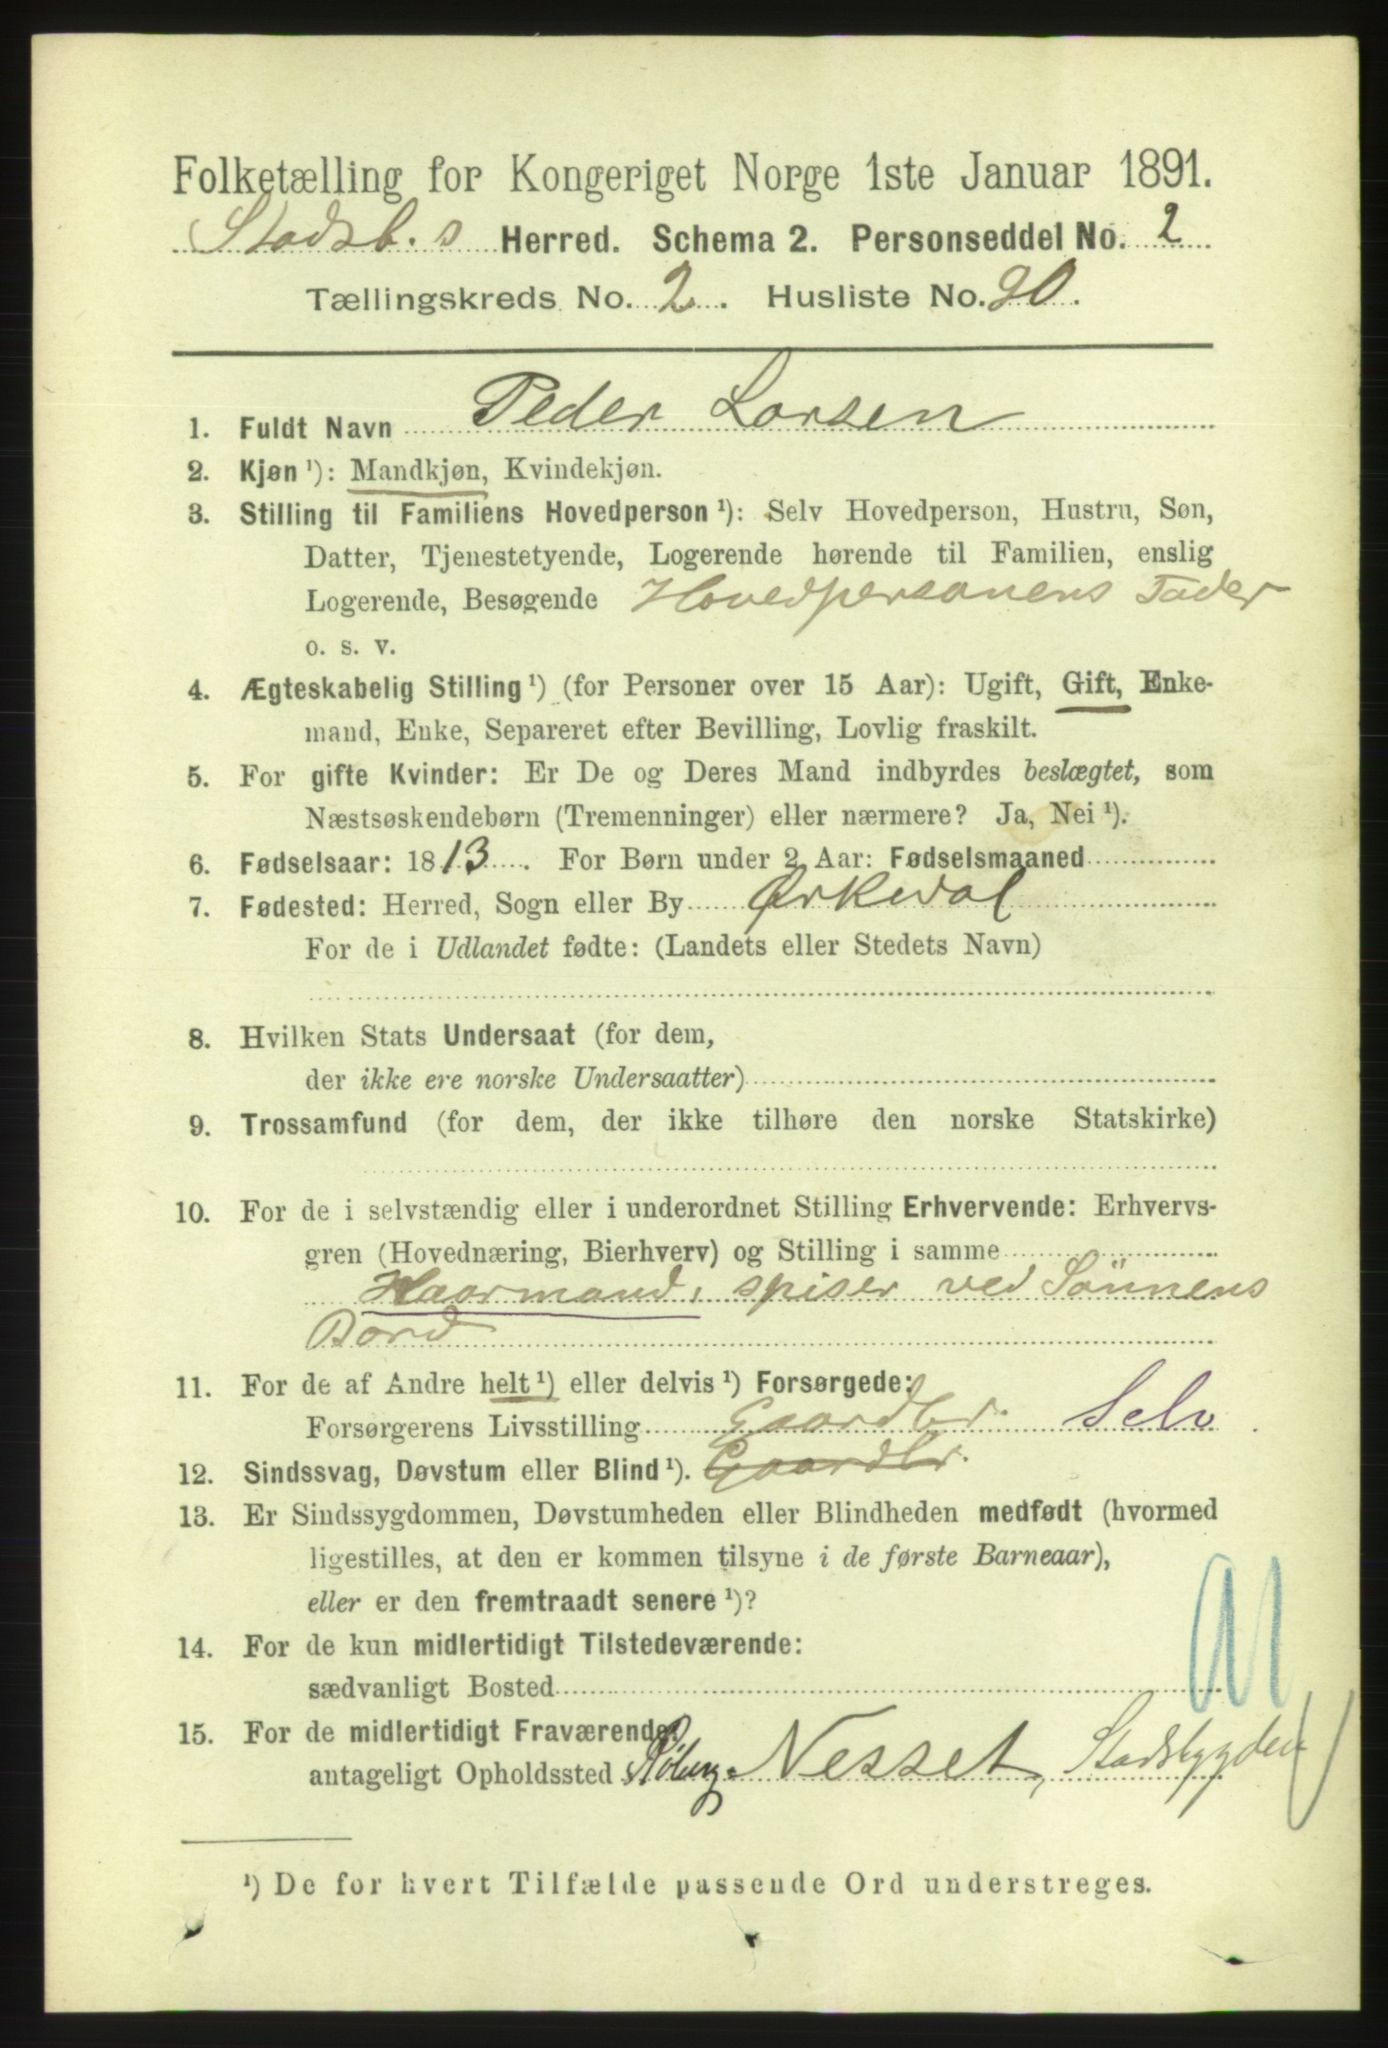 Folketælling for Kongeriget Norge 1ste Januar 1891.
Stadsb.s Herred. Schema 2. Personseddel No. 2
Tællingskreds No. 2. Husliste No. 20.
1. Fuldt Navn Peder Larsen
2. Kjøn ¹): Mandkjøn, Kvindekjøn.
3. Stilling til Familiens Hovedperson ¹): Selv Hovedperson, Hustru, Søn,
Datter, Tjenestetyende, Logerende hørende til Familien, enslig
Logerende, Besøgende Hovedpersonens Fader
o. s. v.
4. Ægteskabelig Stilling ¹) (for Personer over 15 Aar): Ugift, Gift, Enke-
mand, Enke, Separeret efter Bevilling, Lovlig fraskilt.
5. For gifte Kvinder: Er De og Deres Mand indbyrdes beslægtet, som
Næstsøskendebørn (Tremenninger) eller nærmere? Ja, Nei ¹).
6. Fødselsaar: 1813. For Børn under 2 Aar: Fødselsmaaned
7. Fødested: Herred, Sogn eller By Ørkedal
For de i Udlandet fødte: (Landets eller Stedets Navn)
8. Hvilken Stats Undersaat (for dem,
der ikke ere norske Undersaatter)
9. Trossamfund (for dem, der ikke tilhøre den norske Statskirke)
10. For de i selvstændig eller i underordnet Stilling Erhvervende: Erhvervs-
gren (Hovednæring, Bierhverv) og Stilling i samme
Kaarmand, spiser ved Sønnens
Bord
11. For de af Andre helt ¹) eller delvis ¹) Forsørgede:
Forsørgerens Livsstilling Gaardbr. Selv
12. Sindssvag, Døvstum eller Blind ¹). Gaardbr.
13. Er Sindssygdommen, Døvstumheden eller Blindheden medfødt (hvormed
ligestilles, at den er kommen tilsyne i de første Barneaar),
eller er den fremtraadt senere ¹)?
14. For de kun midlertidigt Tilstedeværende:
sædvanligt Bosted
15. For de midlertidigt Fraværende:
antageligt Opholdssted Nesset, Stadsbygden
¹) De for hvert Tilfælde passende Ord understreges.